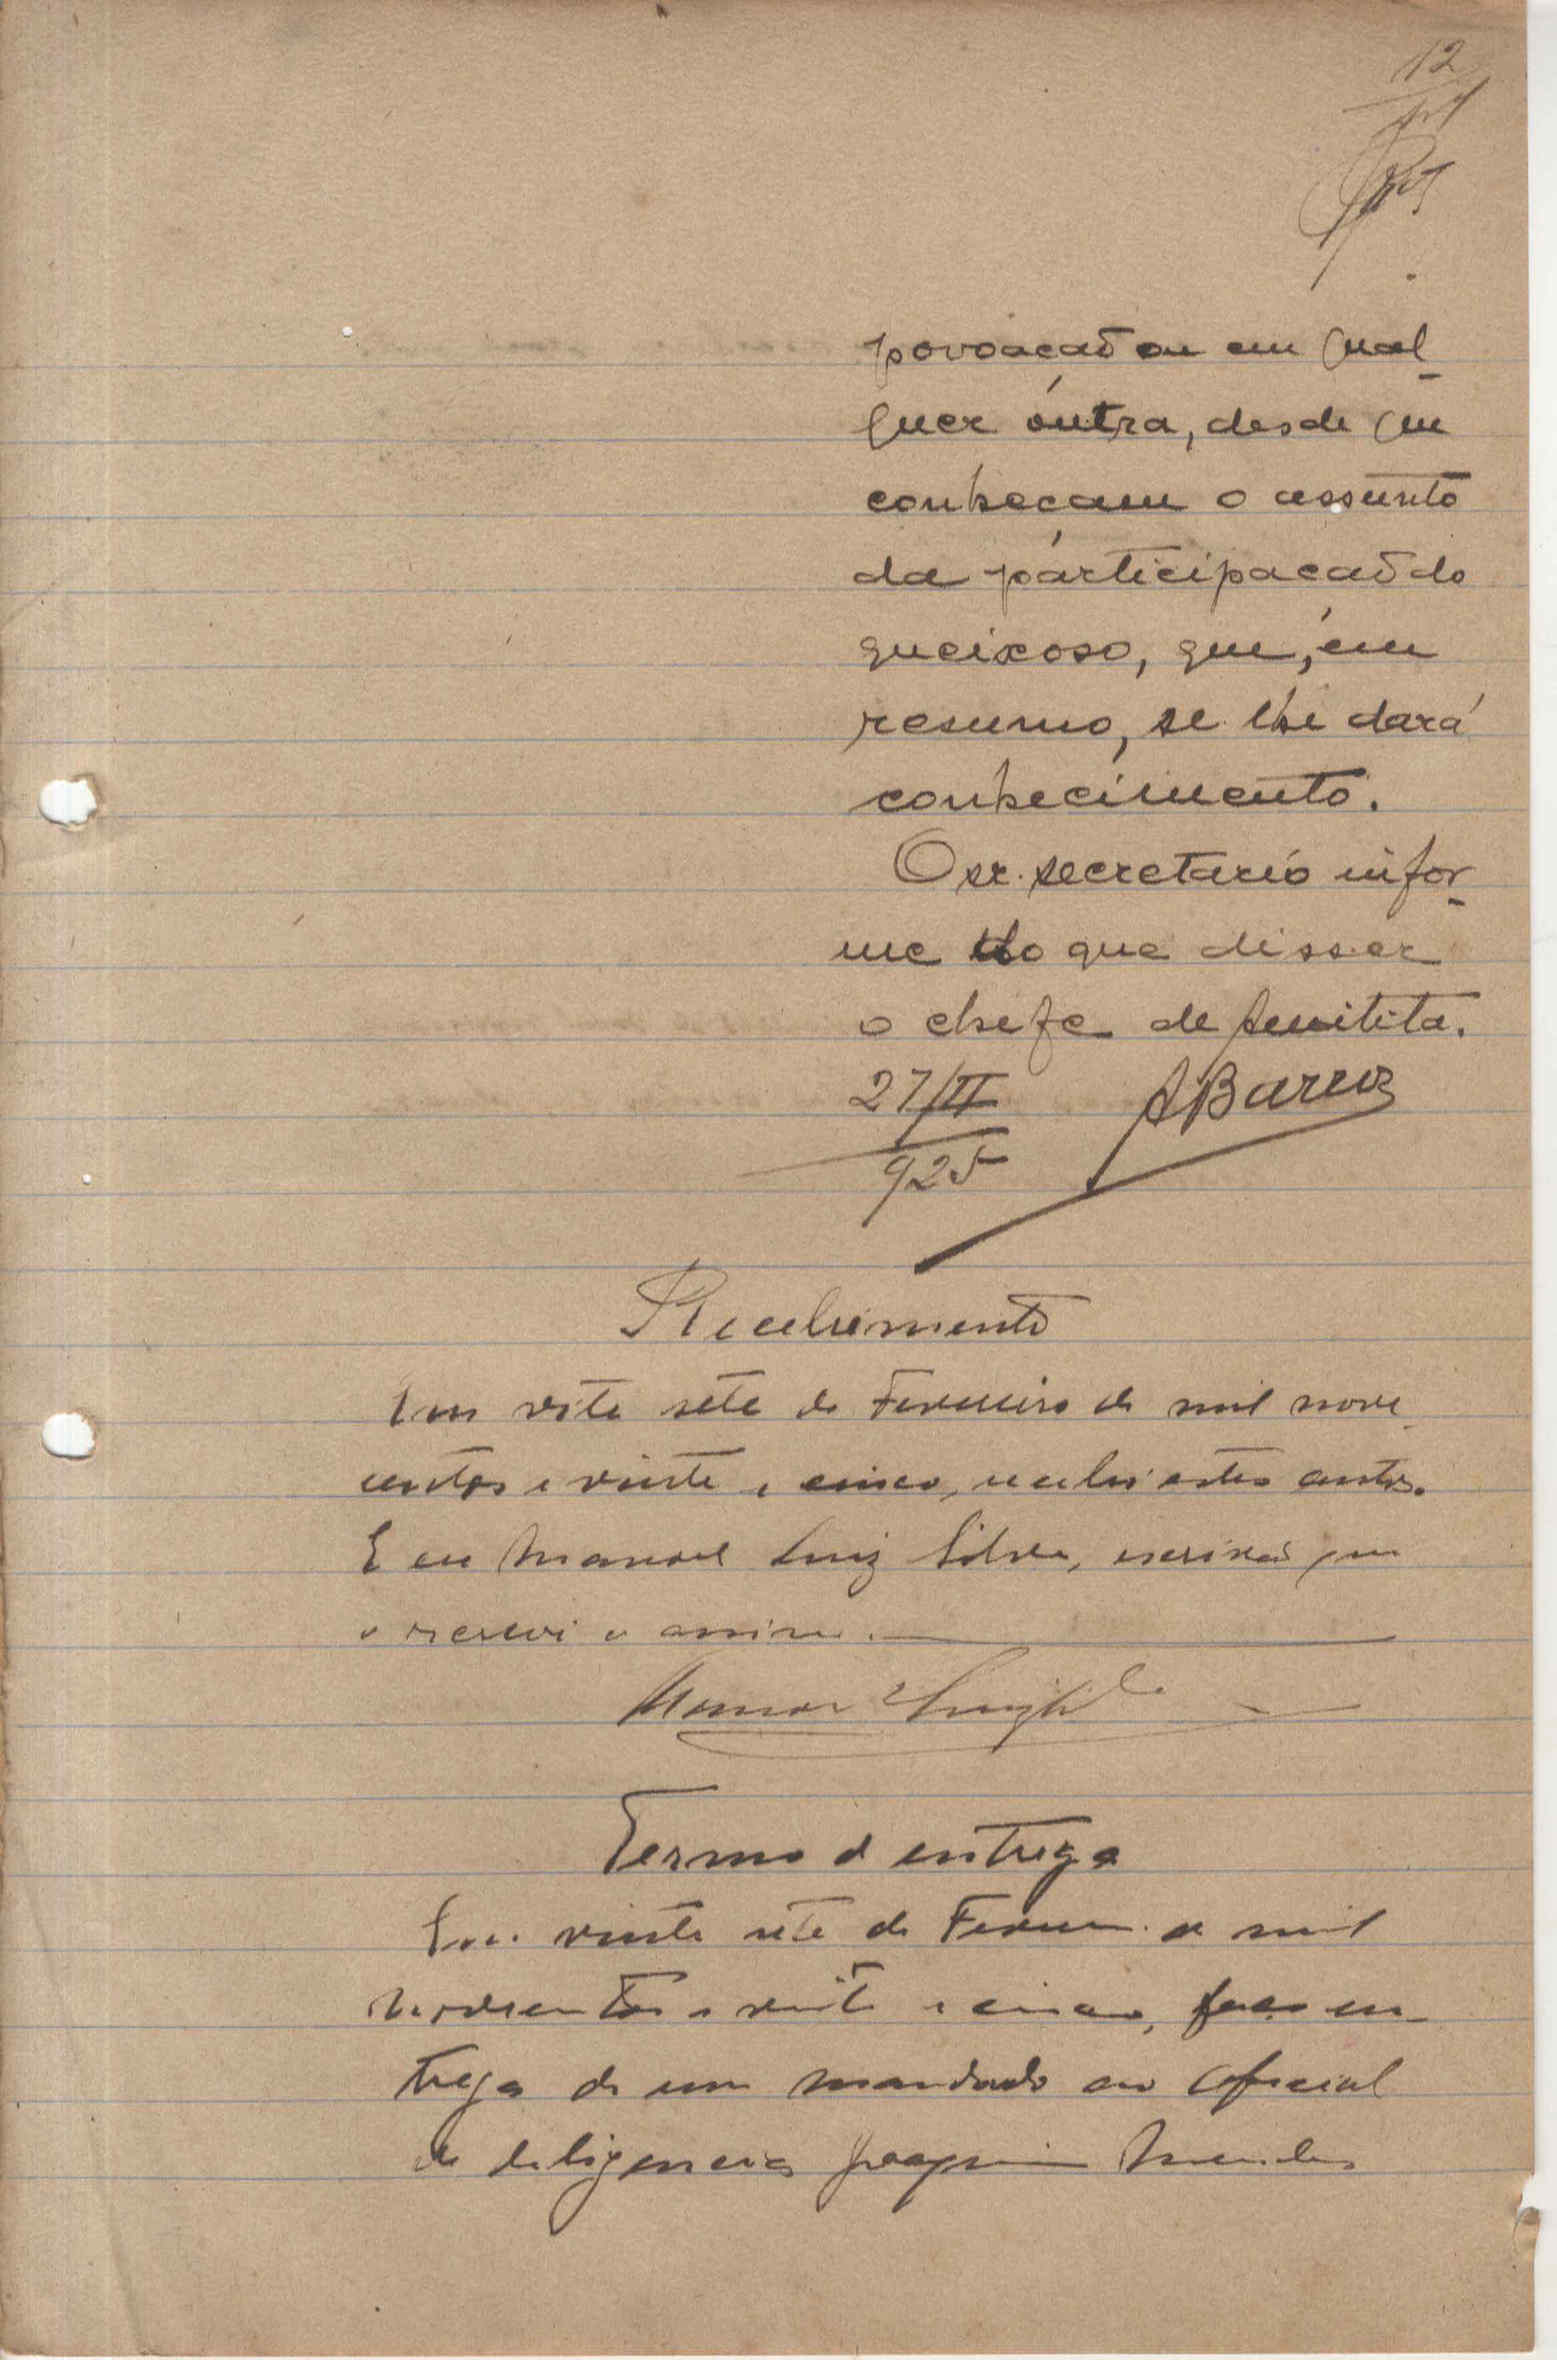 12
povoação ou em qual-
quer outra, desde que
conheçam o assunto
da participação do
queixoso, que, em
resumo, se lhe dará
conhecimento.
O sr. secretario infor-
me do que disser
o chefe de
27/II
925
ABarros
Recebimento
Em vite sete de Fevereiro de mil nove
centos e vinte e cinco, recebi estes autos.
E eu Manoel Luiz Silva, escrivão que
o escrevi e assino.
Manoel Luiz Silva
Termo d entrega
Em vinte sete de Fevereiro de mil
novecentos e vinte e cinco, faço en-
trega de um mandado ao oficial
de diligencias Joaquim Mendes